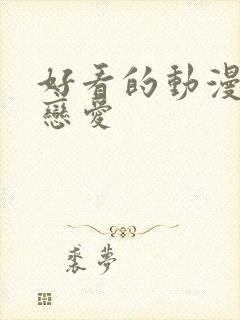 好看的動漫
戀愛
裘夢